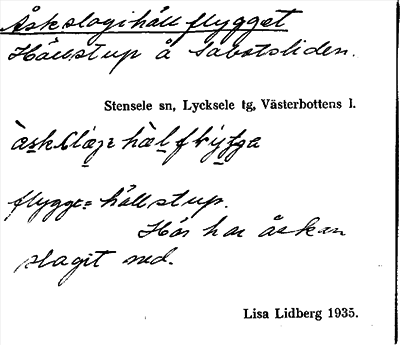 Åskslagihällflygget
Hällstup å Sabotsliden.
Stensele sn, Lycksele tg, Västerbottens l.
flygge = hällstup.
Här har åskan
slagit ned.
Lisa Lidberg 1935.